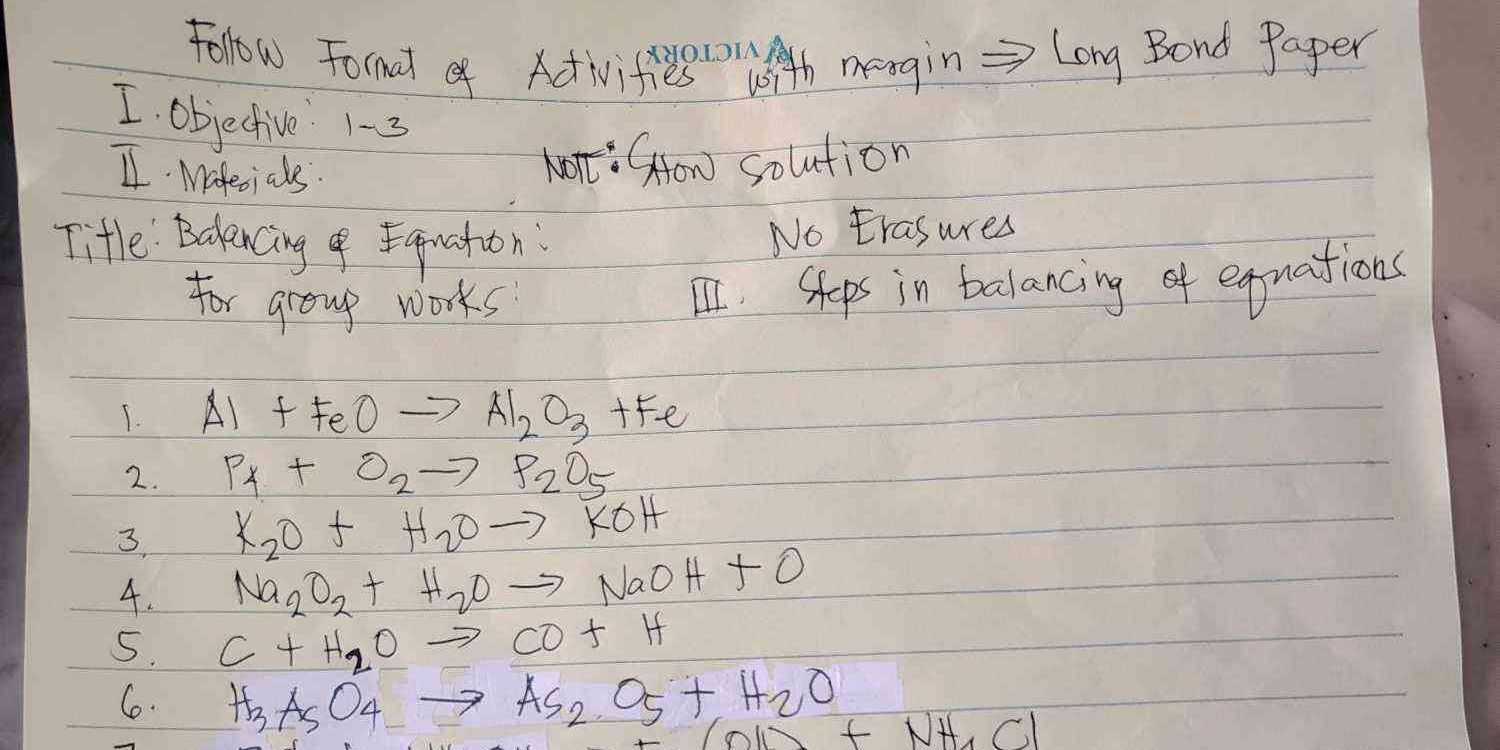 VICTORY
Follow Format of Activities with margin ⇒ Long Bond Paper
I. Objective: 1-3
II. Materials: NOTE: SHOW solution
Title: Balancing of Equation: No Erasures
For group works: III. Steps in balancing of equations
1. Al + FeO → Al₂O₃ + Fe
2. P₄ + O₂ → P₂O₅
3. K₂O + H₂O → KOH
4. Na₂O₂ + H₂O → NaOH + O
5. C + H₂O → CO + H
6. H₃AsO₄ → As₂O₅ + H₂O
(OH) + NH₄Cl